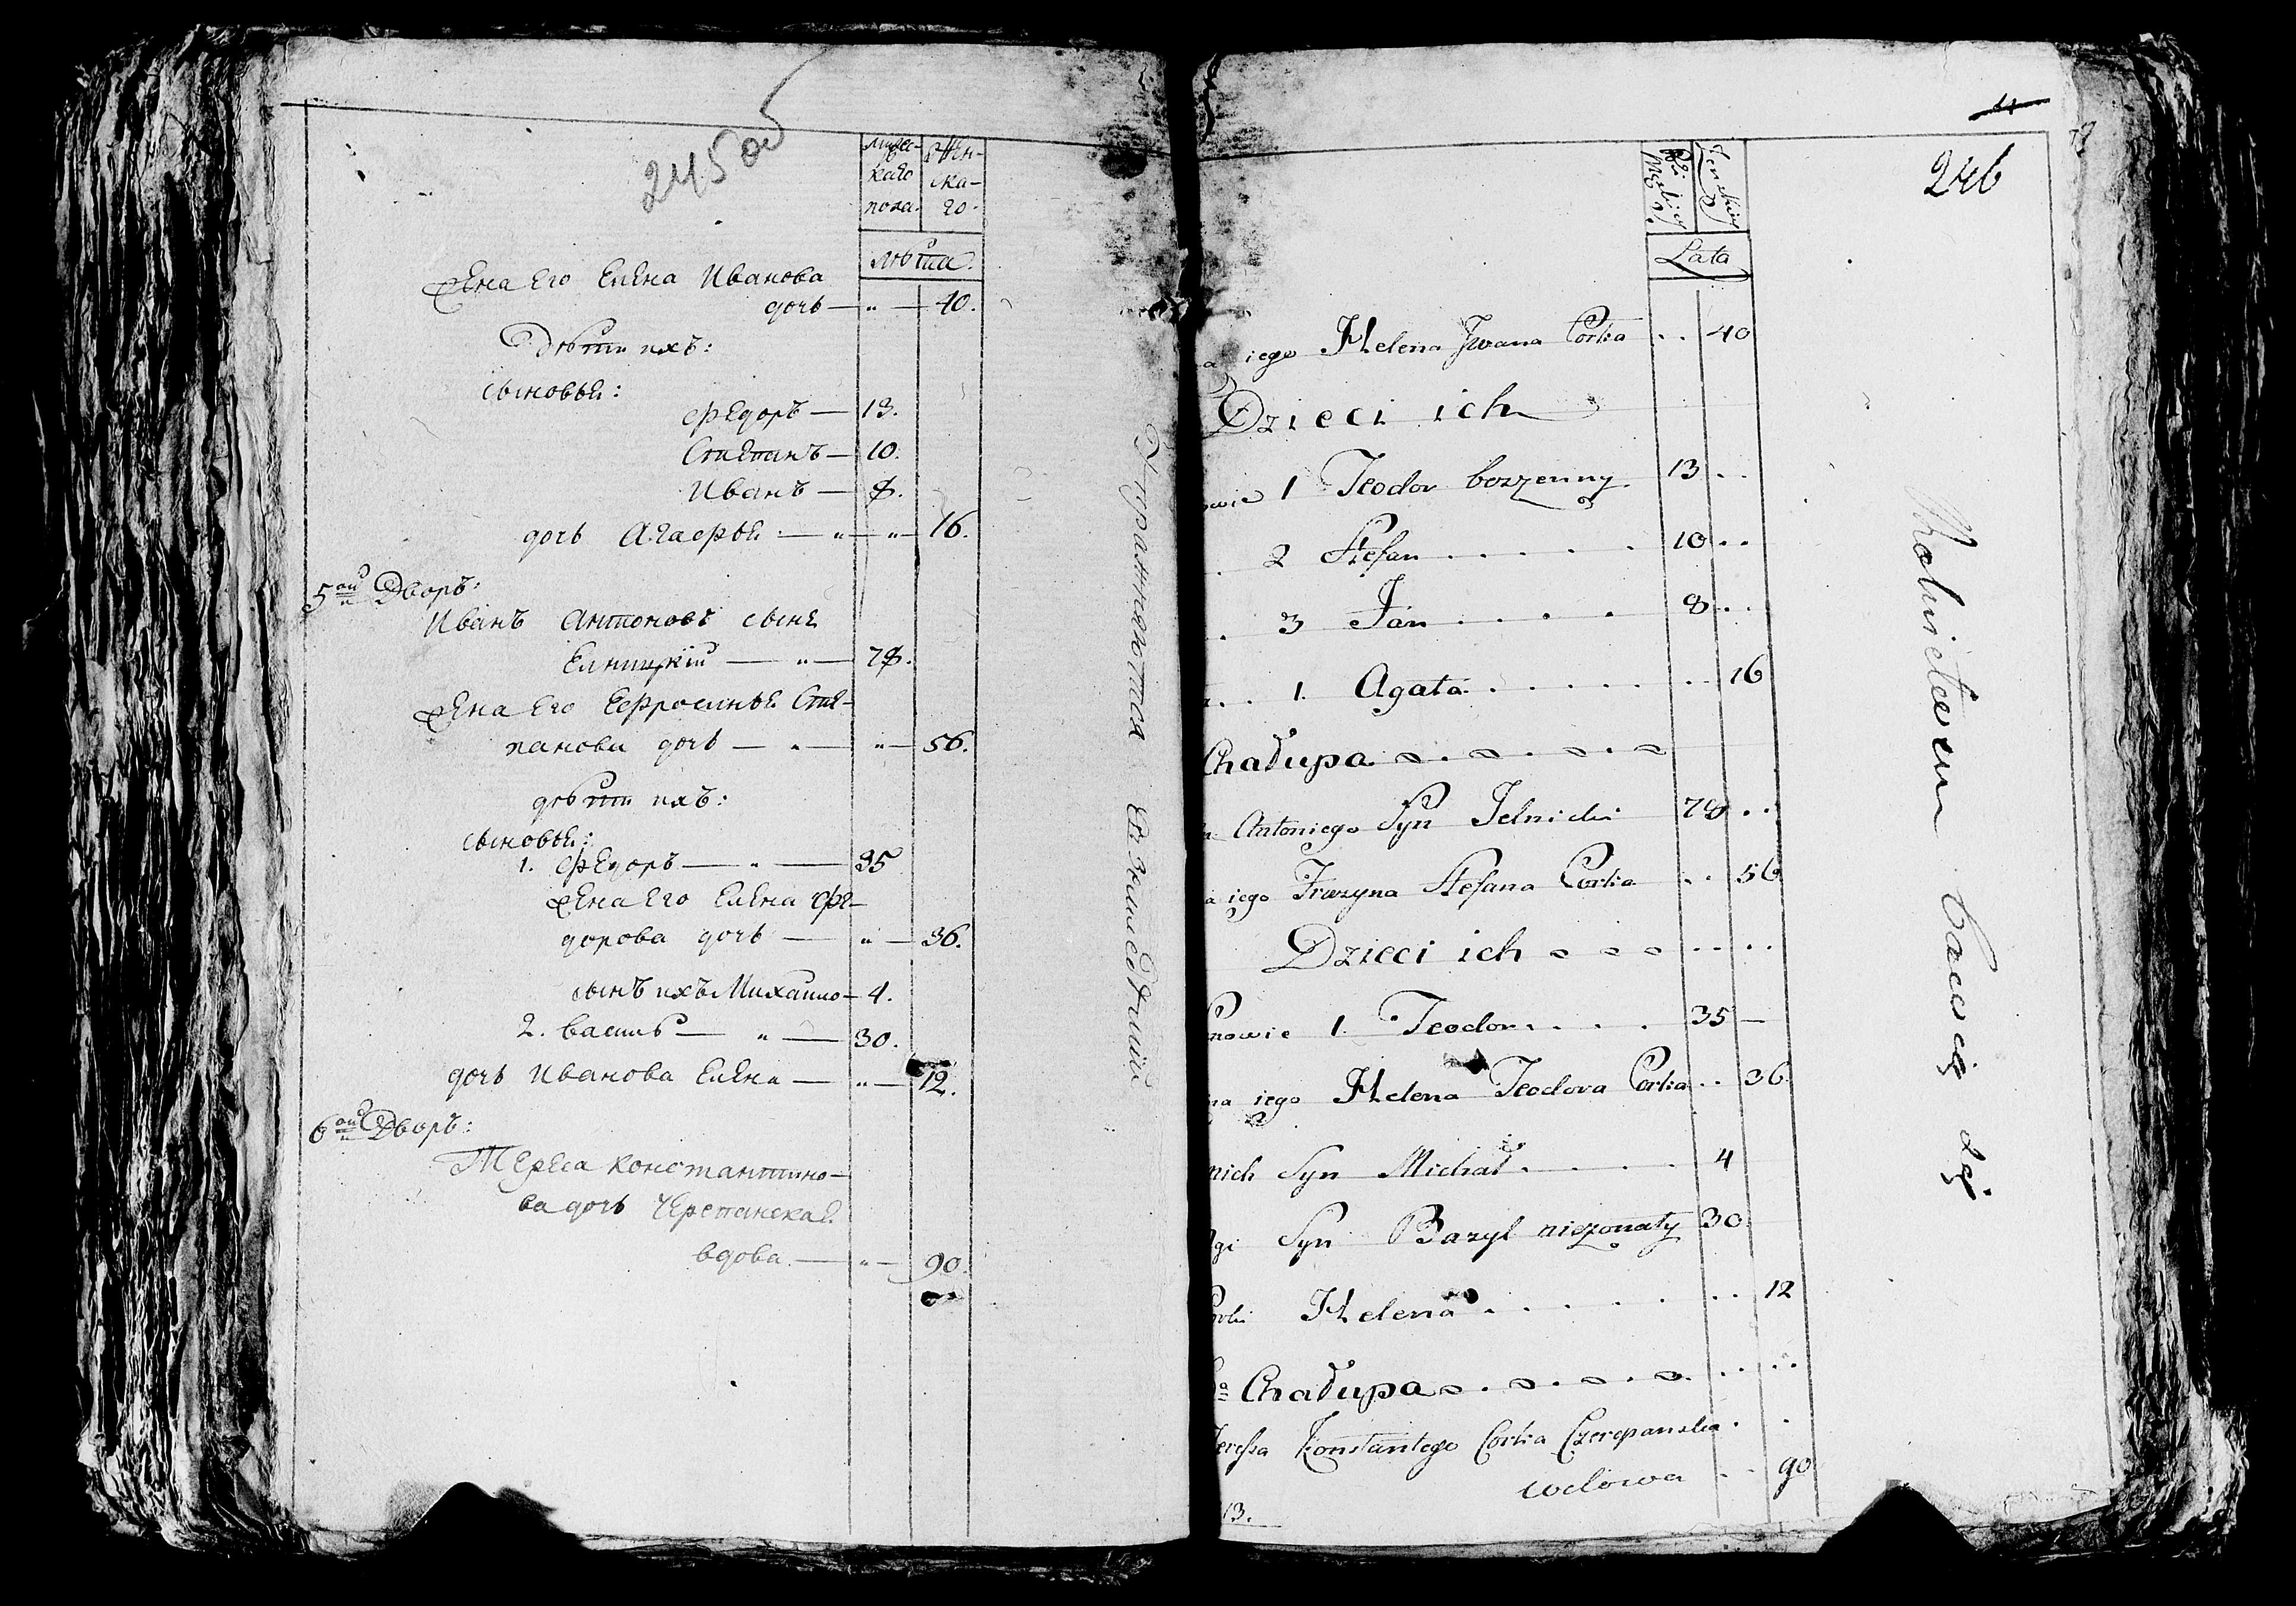 245 об
мужес-
каго
пола.
жен-
ска-
го.
лѣта.
жена его Елена Иванова
дочь — „ — 40.
Дѣти ихъ:
сыновья:
Федоръ — 13.
Степанъ — 10.
Иванъ — 8.
дочь Агафья — „ — „ — 16.
5ой Дворъ:
Иванъ Антоновъ сынъ
Елницкiй — „ — 78.
жена его Ефросинья Сте-
панова дочь — „ — „ — 56.
дѣти ихъ:
сыновья:
1. Федоръ — „ — 35
жена его Елена Фе-
дорова дочь — „ — 36.
сынъ ихъ Михайло — 4.
2. Василь — „ — 30.
дочь Иванова Елена — „ — 12.
6ой Дворъ:
Тереса Константино-
ва дочь Черепанская
вдова. — „ — 90.
11
246
Lata
a iego Helena Jwana Corka . . 40
Dzieci ich
owie 1 Teodor bezzenny. 13 . .
. 2 Stefan . . . . . 10 . .
. 3 Jan . . . . 8 . .
. . 1. Agata . . . . . . . 16
Chałupa
Antoniego Syn Jelnicki 78 . .
a iego Fruzyna Stefana Corka . . 56
Dzieci ich . . . .
nowie 1. Teodor . . . . 35 —
na iego Helena Teodora Corka . . 36
nich Syn Michał . . . . . 4
gi Syn Bazyl niezonaty 30
Helena . . . . . . . 12
Chałupa . . . .
Teressa Konstantego Corka Czerepanska . .
wdowa . . 90
13.